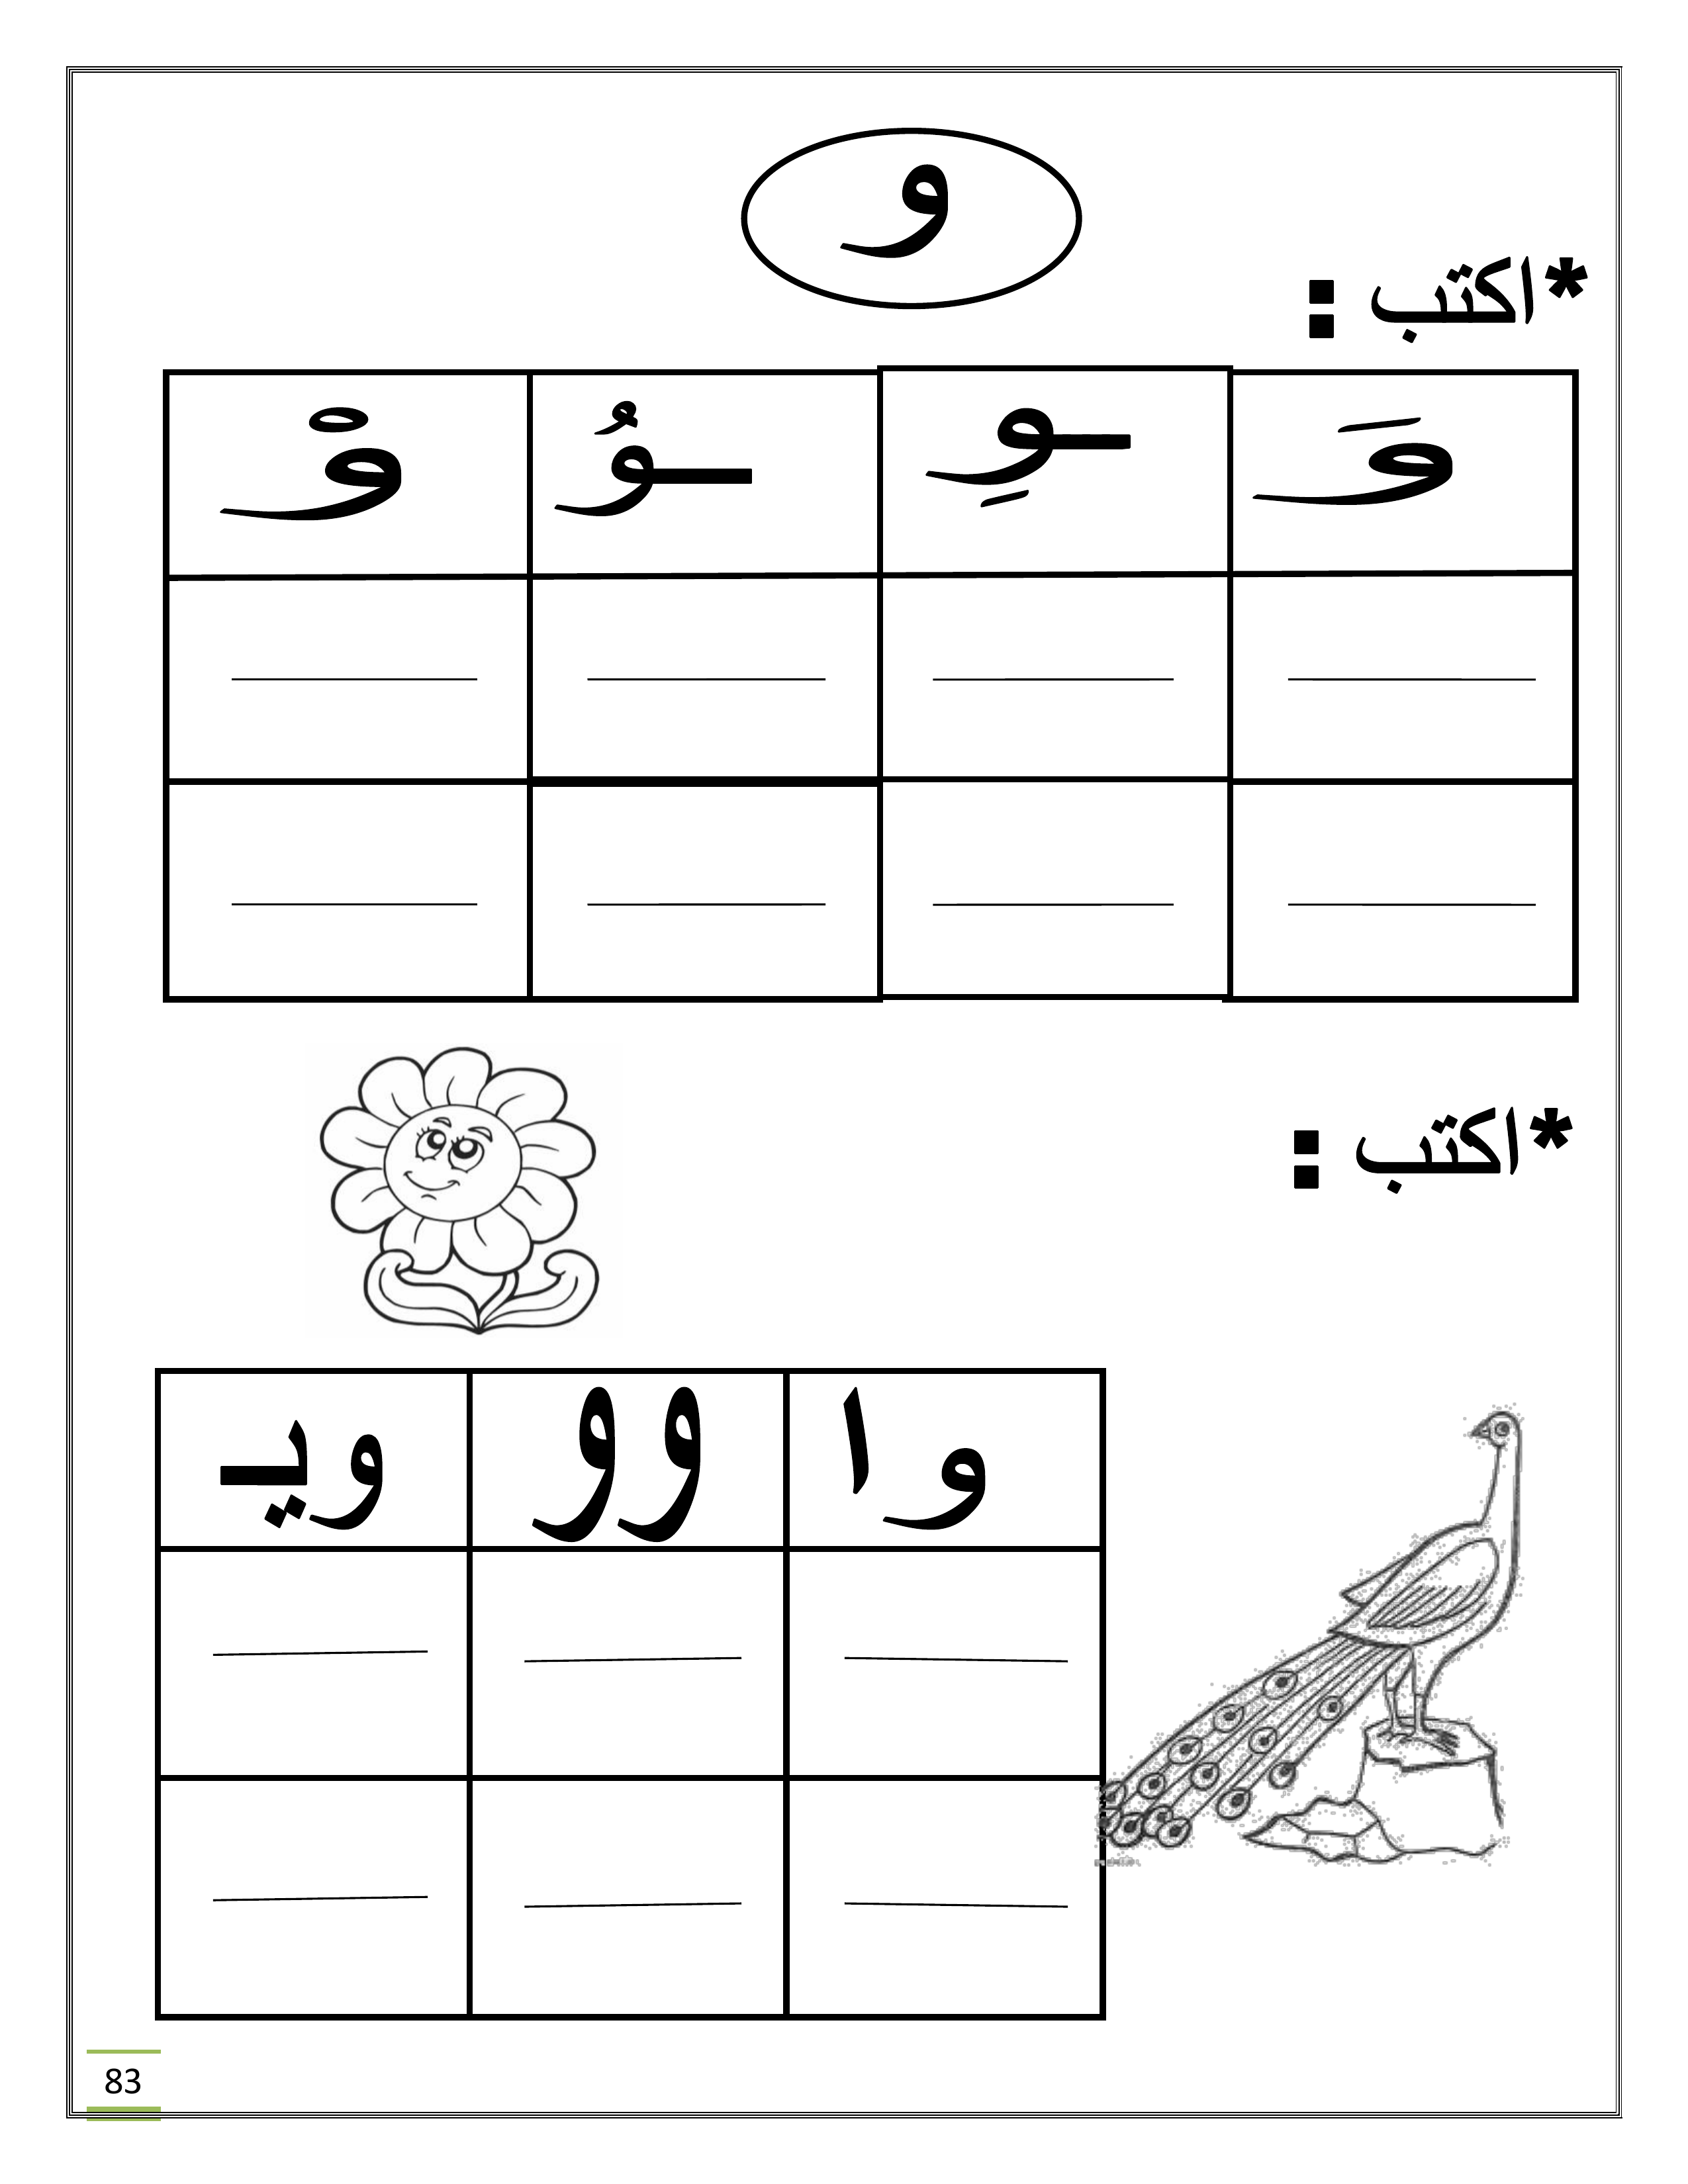 و
*اكتب :
وَ ـوِ ـوُ وْ
*اكتب :
وا وو ويـ
83